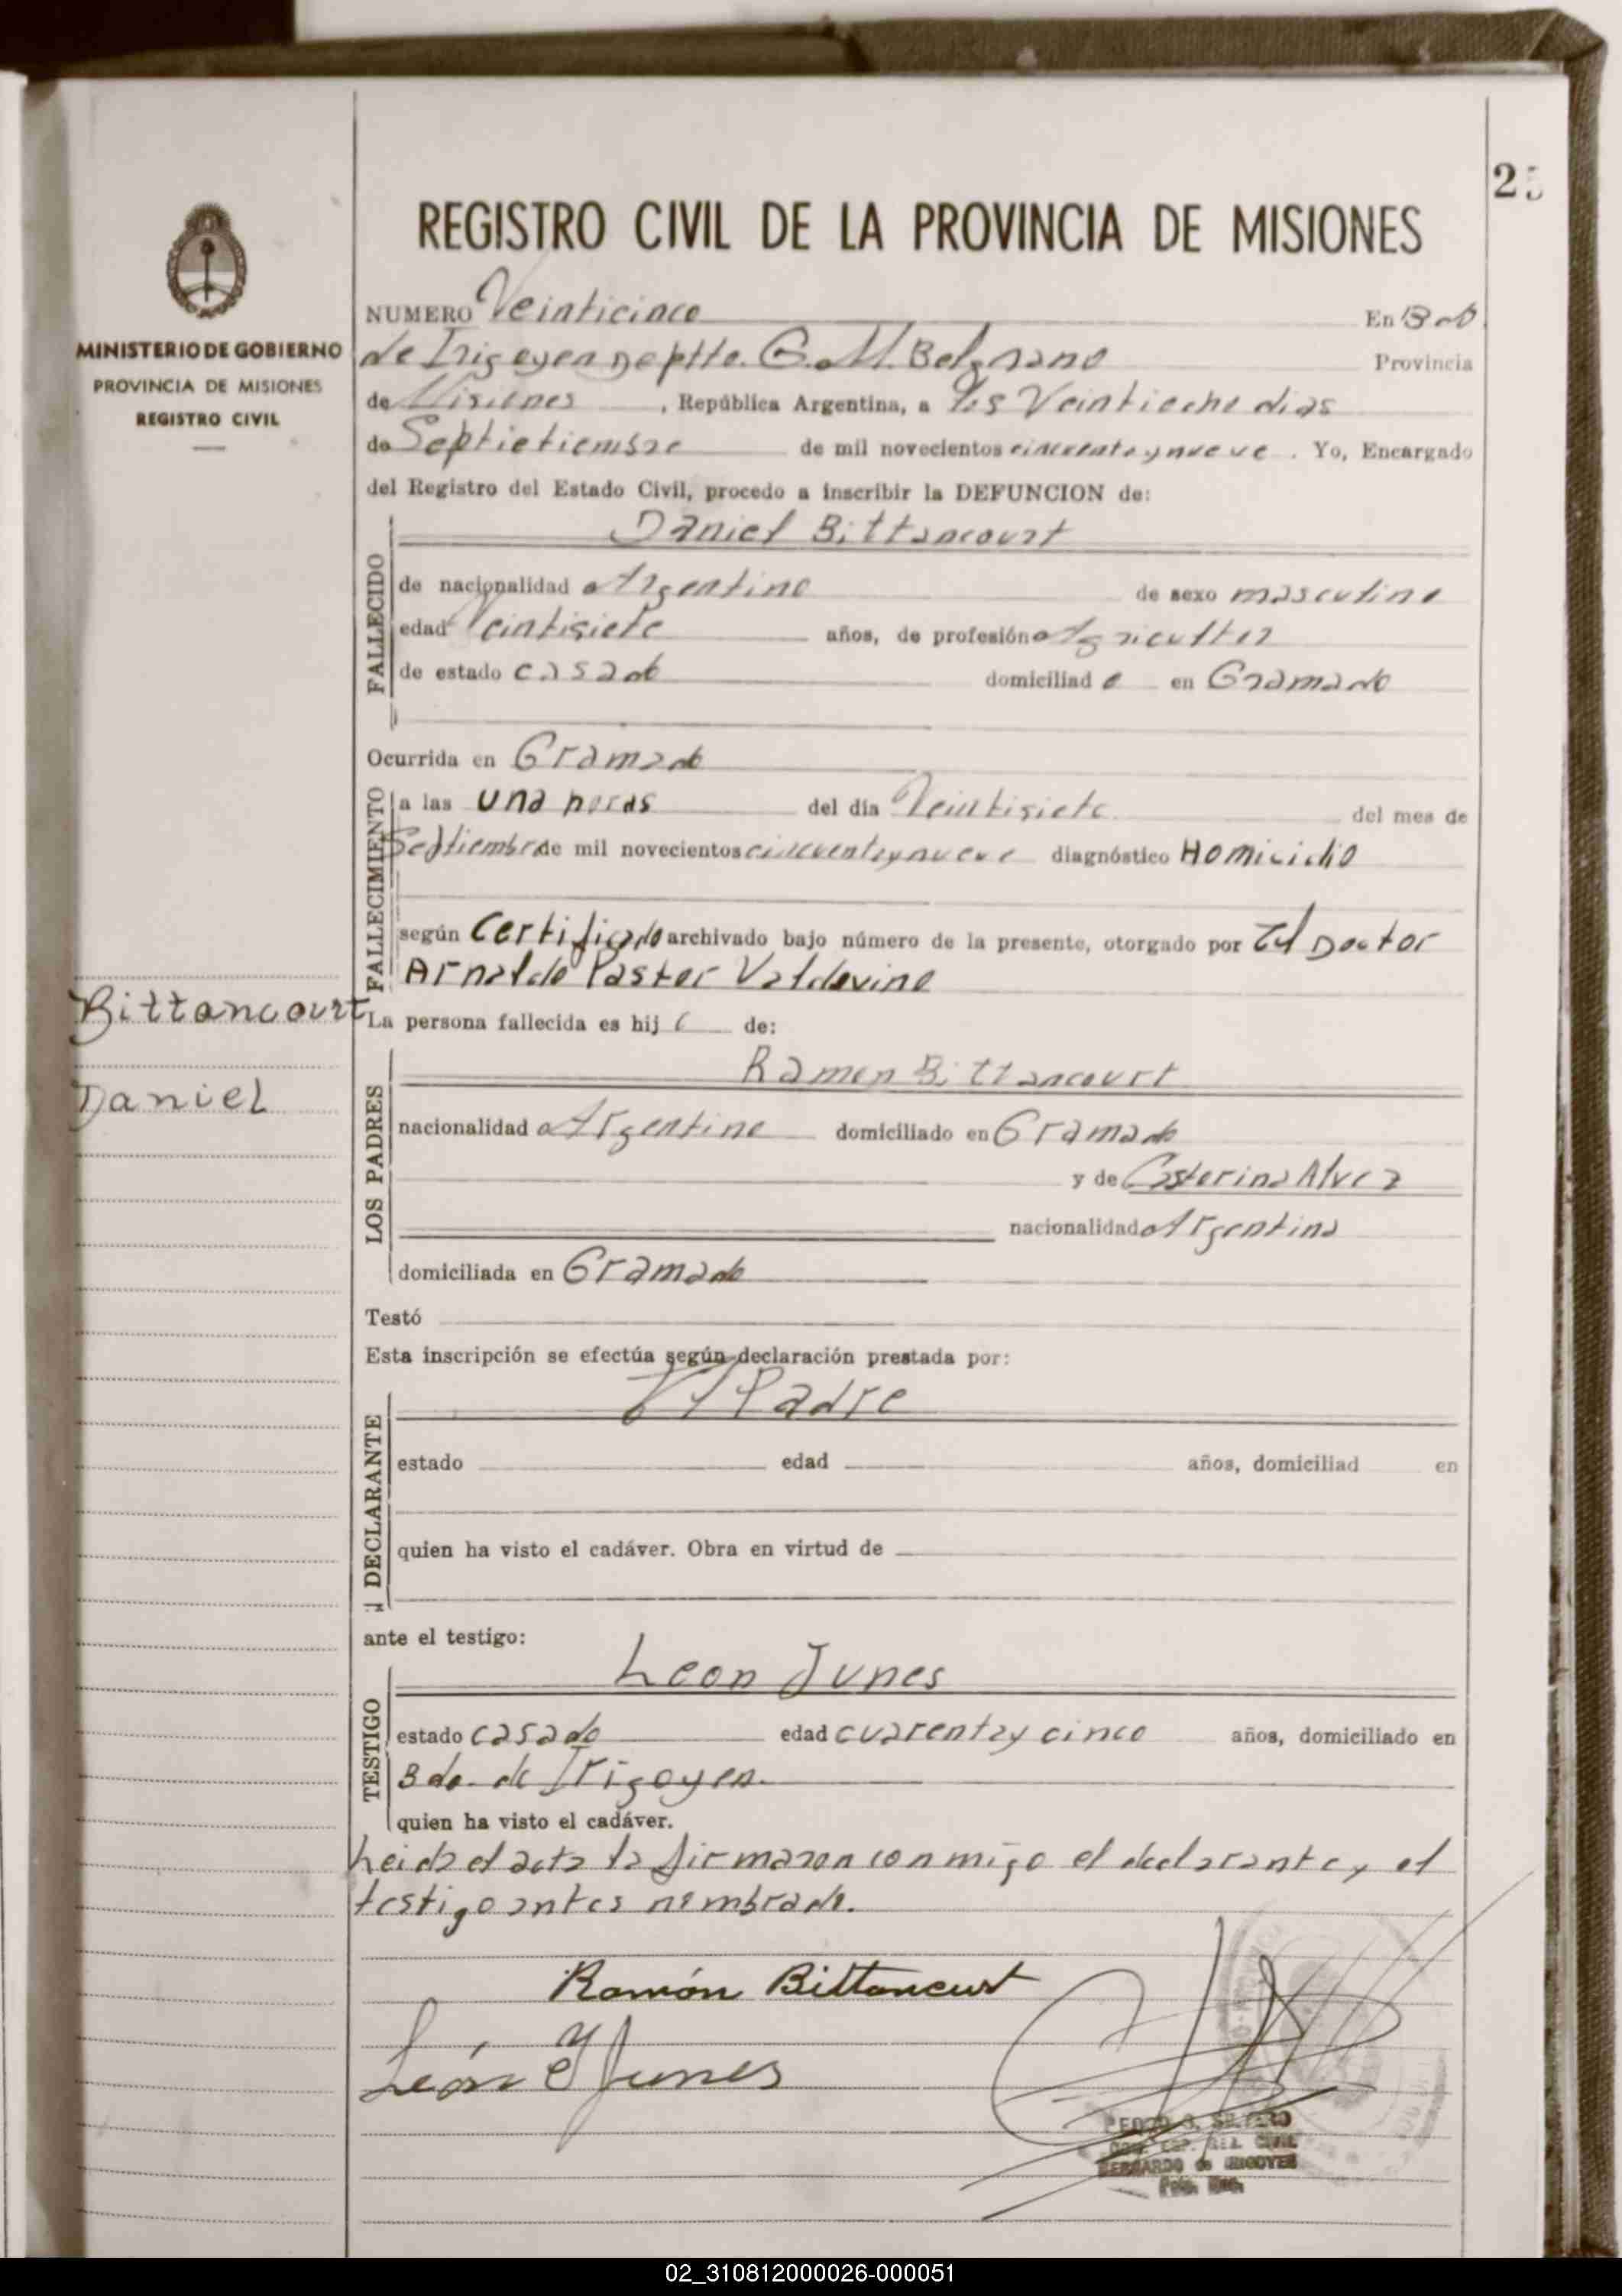 25
REGISTRO CIVIL DE LA PROVINCIA DE MISIONES
MINISTERIO DE GOBIERNO
PROVINCIA DE MISIONES
REGISTRO CIVIL
NUMERO Veinticinco En Bdo
de Irigoyen Deptto. G. M. Belgrano Provincia
de Misiones, República Argentina, a los Veintiocho dias
de Septietiembre de mil novecientos cincuenta y nueve. Yo, Encargado
del Registro del Estado Civil, procedo a inscribir la DEFUNCION de:
FALLECIDO
Daniel Bittancourt
de nacionalidad Argentino de sexo masculino
edad Veintisiete años, de profesión Agricultor
de estado casado domiciliado en Gramado
Ocurrida en Gramado
FALLECIMIENTO
a las una horas del día Veintisiete del mes de
Septiembre de mil novecientos cincuenta y nueve diagnóstico Homicidio
según Certificado archivado bajo número de la presente, otorgado por El Doctor
Arnaldo Pastor Valdovino
Bittancourt
Daniel
La persona fallecida es hijo de:
LOS PADRES
Ramon Bittancourt
nacionalidad Argentino domiciliado en Gramado
y de Alvez
nacionalidad Argentina
domiciliada en Gramado
Testó
Esta inscripción se efectúa según declaración prestada por:
DECLARANTE
El Padre
estado edad años, domiciliad en
quien ha visto el cadáver. Obra en virtud de
ante el testigo:
TESTIGO
Leon Junes
estado casado edad cuarenta y cinco años, domiciliado en
Bdo. de Irigoyen.
quien ha visto el cadáver.
Leida el acta la firmaron conmigo el declarante y el
testigo antes nombrado.
Ramón Bittancurt
León Junes
REG. CIVIL
BERNARDO de IRIGOYEN
02_310812000026-000051